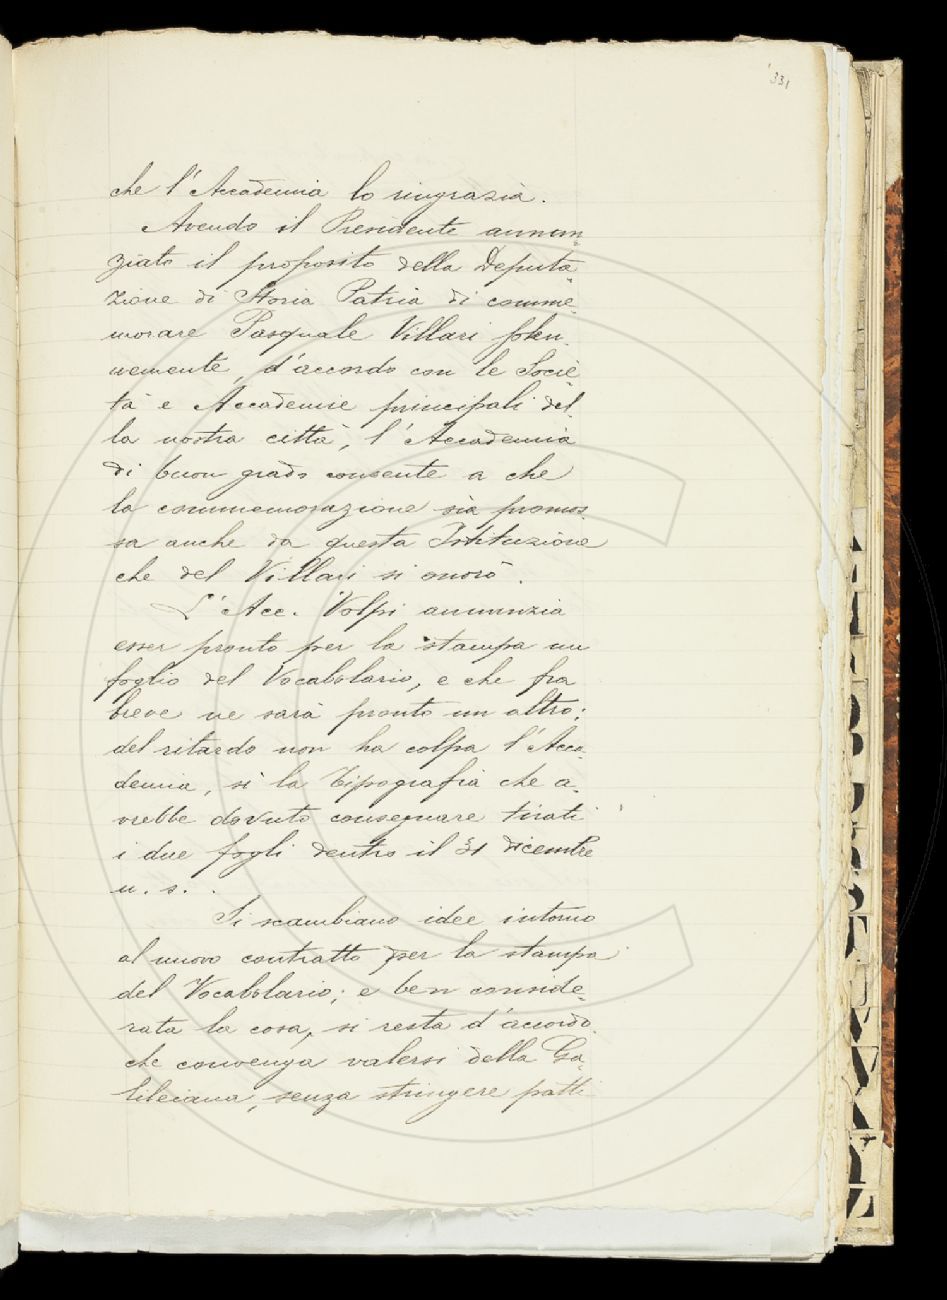 331
che l'Accademia lo ringrazia.
Avendo il Presidente annun-
ziato il proposito della Deputa-
zione di Storia Patria di comme-
morare Pasquale Villari solen-
nemente, d'accordo con le Socie-
tà e Accademie principali del-
la nostra città, l'Accademia
di buon grado consente a che
la commemorazione sia promos-
sa anche da questa Istituzione
che del Villari si onorò.
L'Acc. Volpi annunzia
esser pronto per la stampa un
foglio del Vocabolario, e che fra
breve ne sarà pronto un altro;
del ritardo non ha colpa l'Acca-
demia, sì la Tipografia che a-
vrebbe dovuto consegnare tirati
i due fogli dentro il 31 dicembre
u. s.
Si scambiano idee intorno
al nuovo contratto per la stampa
del Vocabolario; e ben conside-
rata la cosa, si resta d'accordo
che convenga valersi della Ga-
lileiana, senza stringere patti